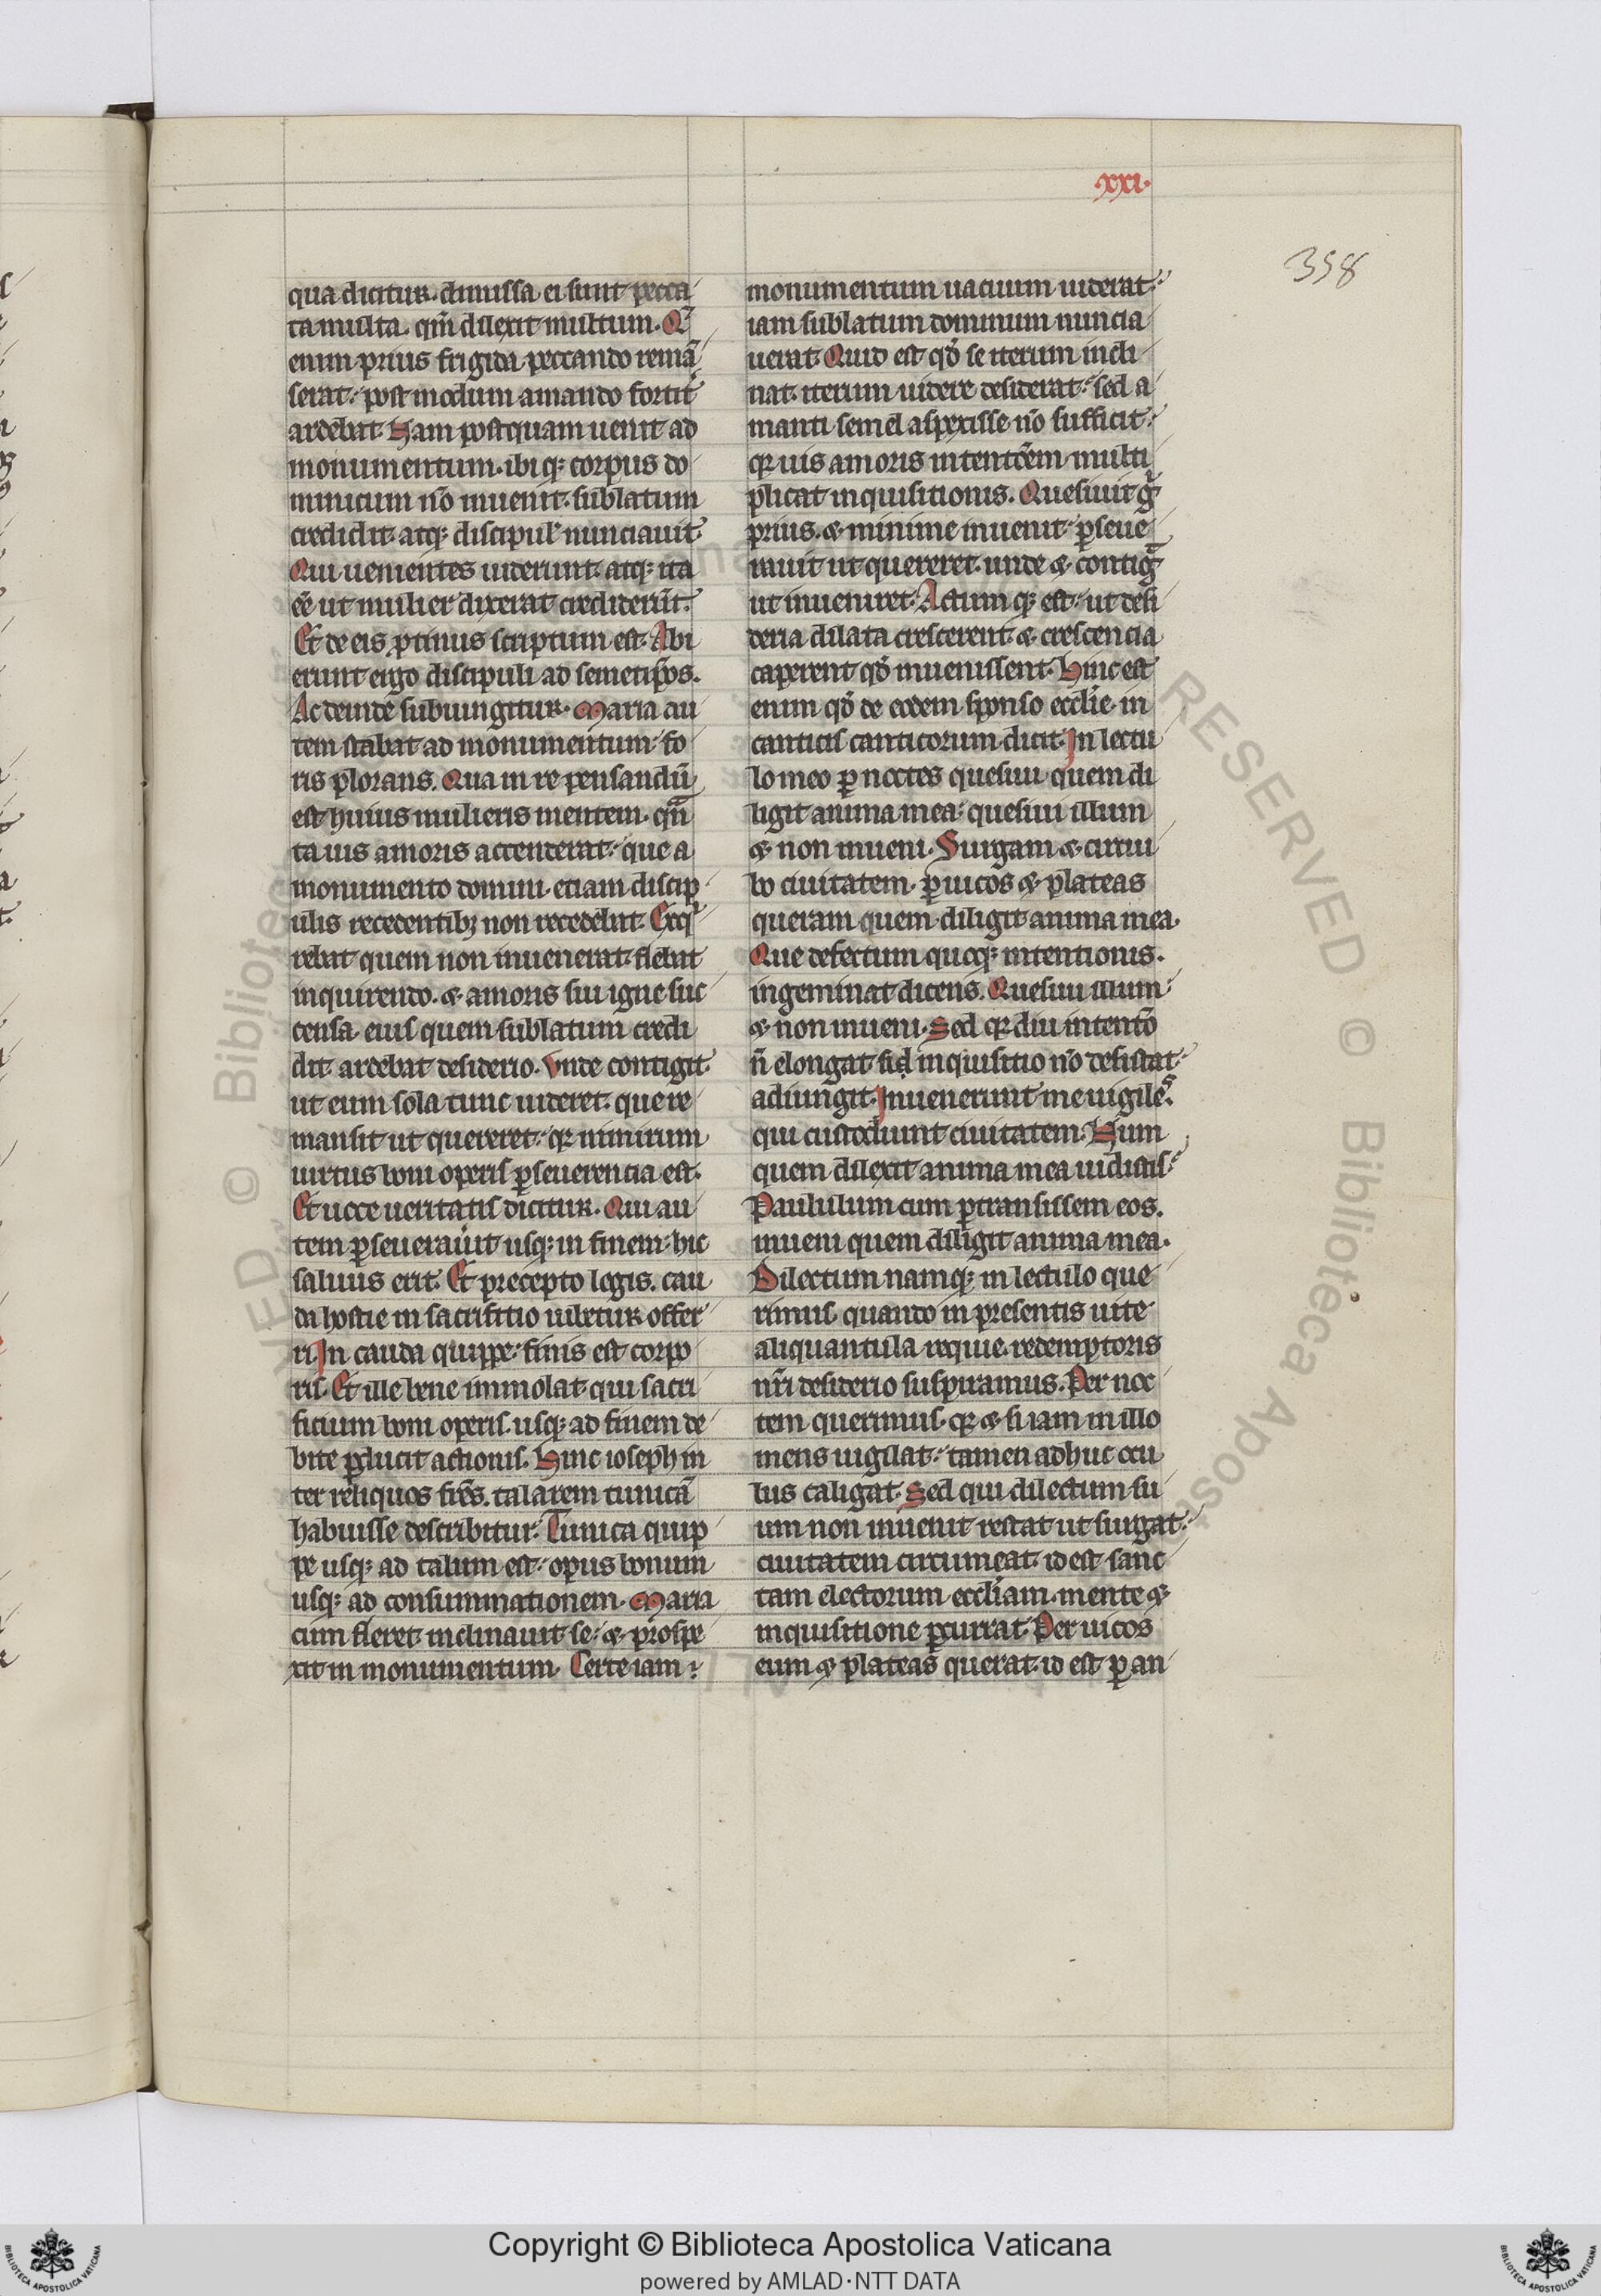 .xxi.
358
qua dicitur. dimissa ei sunt pecca
ta multa. qm̄ dilexit multum. Qͥ
enim prius frigida peccando remā
serat. post modum amando fortit᷑
ardebat. Nam postquam uenit ad
monumentum. ibiqꝫ corpus do
minicum nō inuenit. sublatum
credidit. atqꝫ discipul᷑ nunciauit.
Qui uenientes uiderunt. atqꝫ ita
eē ut mulier dixerat crediderūt.
Et de eis ꝓtinus scriptum est. Abi
erunt ergo discipuli ad semetip̄os.
Ac deinde subiungitur. Maria au
tem stabat ad monumentum fo
ris plorans. Qua in re pensandū
est huius mulieris mentem. qn̄
ta uis amoris accenderat. que a
monumento domini. etiam discip
ulis recedentibꝫ non recedebat. Exqͥ
rebat quem non inuenerat. flebat
inquirendo. ⁊ amoris sui igne suc
censa. eius quem sublatum credi
dit. ardebat desiderio. Vnde contigit.
ut eum sola tunc uideret. que re
mansit ut quereret. qꝛ nimirum
uirtus boni operis ꝑseuerencia est.
Et uoce ueritatis dicitur. Qui au
tem ꝑseuerauit usqꝫ in finem. hic
saluus erit. Et precepto legis. cau
da hostie in sacrifitio iubetur offer
ri. In cauda quippe. finis est corpo
ris. Et ille bene immolat qui sacri
ficium boni operis. usqꝫ ad finem de
bite ꝑducit actionis. Hinc ioseph in
ter reliquos fr̄es. talarem tunicā
habuisse describitur. Tunica quip
pe usqꝫ ad talum est. opus bonum
usqꝫ ad consummationem. Maria
cum fleret. inclinauit se. ⁊ prospe
xit in monumentum. Certe iam
monumentum uacuum uiderat.
iam sublatum dominum nuncia
uerat. Quid est qd̓ se iterum incli
nat. iterum uidere desiderat. sed a
manti semel aspexisse nō sufficit.
qꝛ uis amoris intentōem multi
plicat inquisitionis. Quesiuit gͦ
prius. ⁊ minime inuenit. ꝑseue
rauit ut quereret. unde ⁊ contig̅
ut inueniret. Actum qꝫ est. ut desi
deria dilata crescerent. ⁊ crescencia
caperent qd̓ inuenissent. Hinc est
enim qd̓ de eodem sponso ecclīe in
canticis canticorum dicit. In lectu
lo meo ꝑ noctes quesiui quem di
ligit anima mea. quesiui illum
⁊ non inueni. Surgam ⁊ circui
bo ciuitatem. ꝑ uicos ⁊ plateas
queram quem diligit anima mea.
Que defectum quoqꝫ intentionis.
ingeminat dicens. Quesiui illum
⁊ non inueni. Sed qꝛ diu intentō
n̄ elongat si d inquisitio nō desistat.
adiungit. Inuenerunt me uigiles.
qui custodiunt ciuitatem. Num
quem dilexit anima mea uidistis.
Paululum cum ꝑtransissem eos.
inueni quem diligit anima mea.
Dilectum namqꝫ in lectulo que
rimus. quando in presentis uite
aliquantula requie. redemptoris
nr̄i desiderio suspiramus. Per noc
tem querimus. qꝛ ⁊ si iam in illo
mens uigilat. tamen adhuc ocu
lus caligat. Sed qui dilectum su
um non inuenit restat ut surgat.
ciuitatem circumeat. id est sanc
tam electorum eccl̄iam. mente ⁊
inquisitione ꝑcurrat. Per uicos
eum ⁊ plateas querat. id est ꝑ an
Copyright © Biblioteca Apostolica Vaticana
powered by AMLAD·NTT DATA